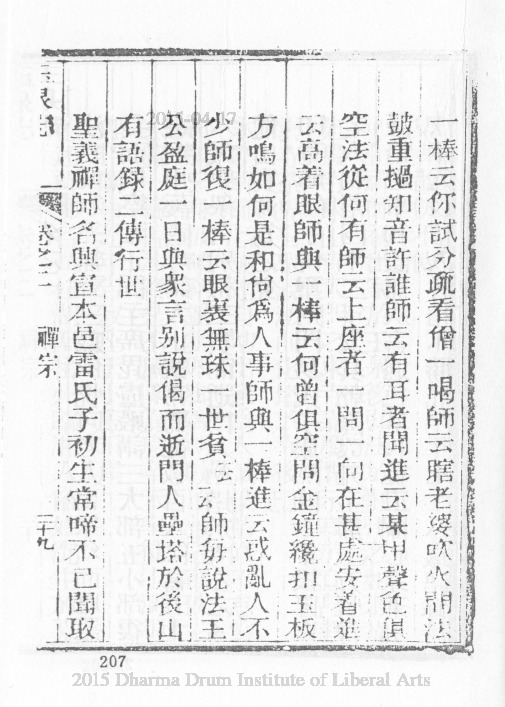 一棒云你試分疏看僧一喝師云瞎老婆吹火問法
皷重撾知音許誰師云有耳者聞進云某甲聲色俱
空法從何有師云上座者一問一向在甚處安着進
云高着眼師與一棒云何曾俱空問金鐘纔扣玉板
方鳴如何是和尚爲人事師與一棒進云惑亂人不
少師復一棒云眼裏無珠一世貧云云師每說法王
公盈庭一日與衆言别說偈而逝門人壘塔於後山
有語録二傳行世
聖義禪師名興宣本邑雷氏子初生常啼不已聞取
卷之二 禪宗
二十九
207
2015 Dharma Drum Institute of Liberal Arts